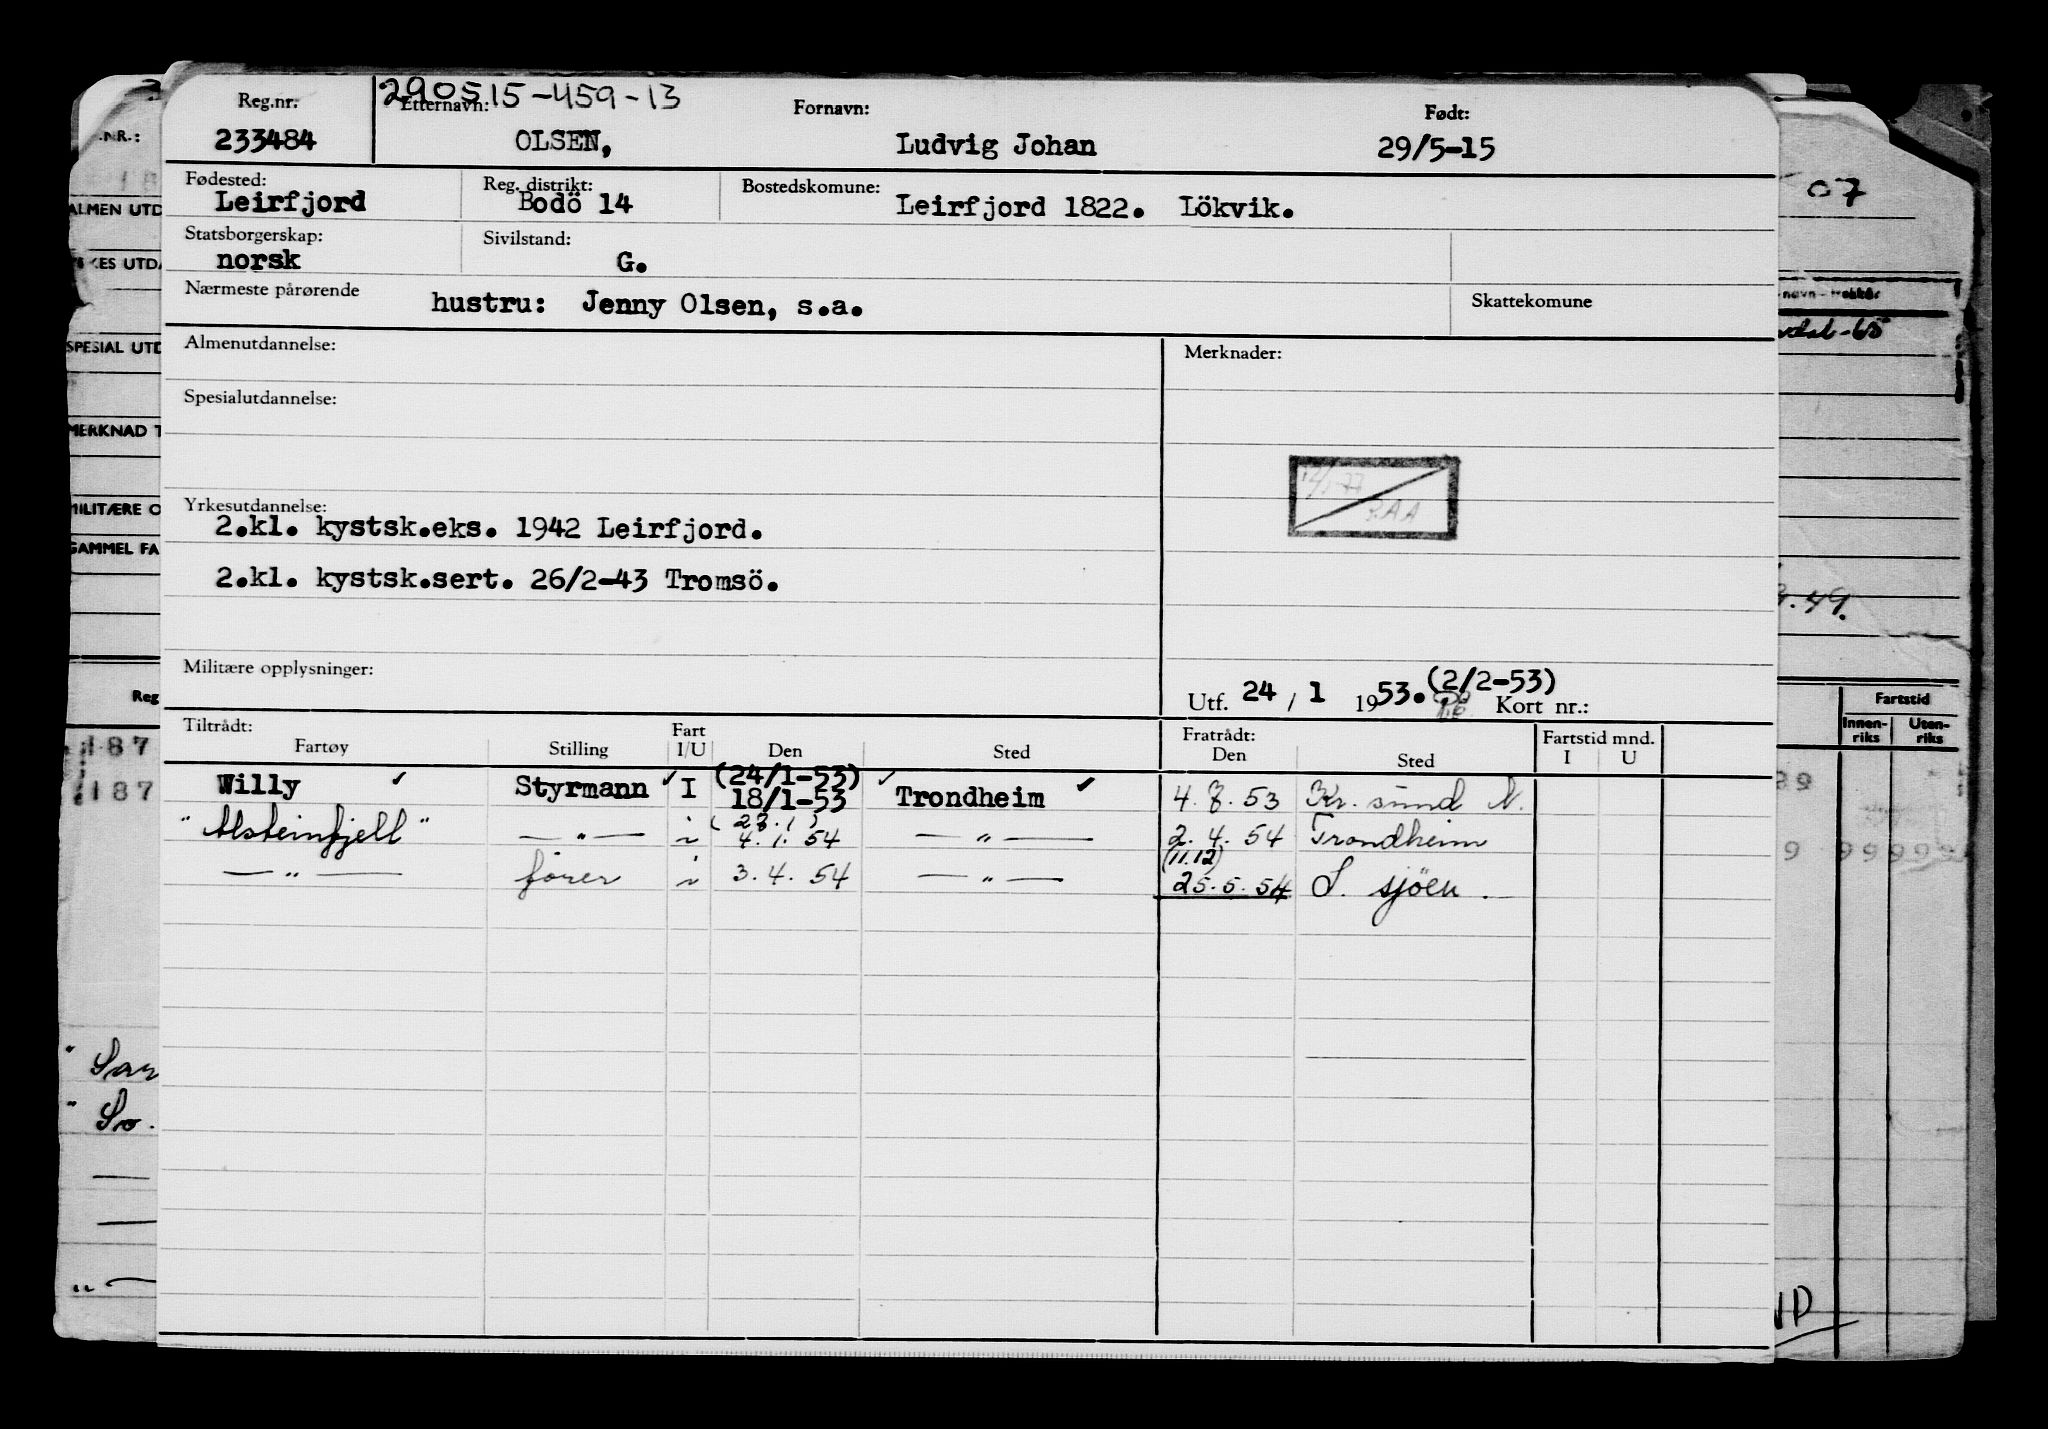 290515-459-13
Reg.nr. Etternavn: Fornavn: Født:
233484 OLSEN, Ludvig Johan 29/5-15
Fødested: Reg. distrikt: Bostedskomune:
Leirfjord Bodö 14 Leirfjord 1822. Lökvik.
Statsborgerskap: Sivilstand:
norsk G.
Nærmeste pårørende hustru: Jenny Olsen, s.a. Skattekomune
Almenutdannelse: Merknader:
Spesialutdannelse:
Yrkesutdannelse:
2.kl. kystsk.eks. 1942 Leirfjord.
2.kl. kystsk.sert. 26/2-43 Tromsö.
Militære opplysninger:
Utf. 24 / 1 1953. (2/2-53) Kort nr.:
Tiltrådt: Fart Fratrådt: Fartstid mnd.
Fartøy Stilling I/U Den Sted Den Sted I U
(24/1-53)
Willy Styrmann I 18/1-53 Trondheim 4.8.53 Kr. sund N.
"Alsteinfjell" — " — i 4.1.54 — " — 2.4.54 Trondheim
(11.12)
— " — fører i 3.4.54 — " — 25.5.54 S. sjöen.
.NR.:
ALMEN UTD
KES UTDA
SPESIAL UTD
MERKNAD T
MILITÆRE O
GAMMEL FA
Reg
187
187
" San
" So.
07
-65
.49.
Fartstid
Innen-riks Uten-riks